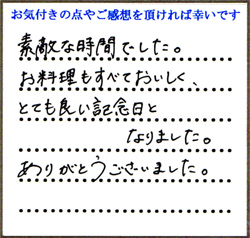 お気付きの点やご感想を頂ければ幸いです
素敵な時間でした。
お料理もすべておいしく、
とても良い記念日と
なりました。
ありがとうございました。